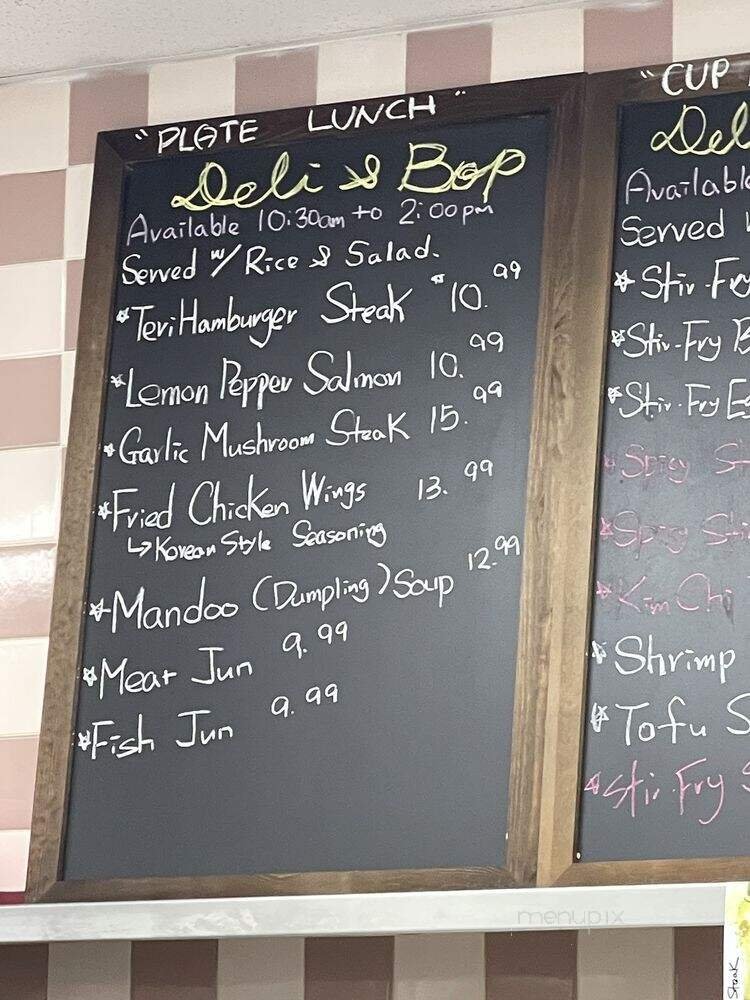 "PLATE LUNCH"
Deli & Bop
Available 10:30am to 2:00pm
Served w/ Rice & Salad.
*Teri Hamburger Steak 10.99
*Lemon Pepper Salmon 10.99
*Garlic Mushroom Steak 15.99
*Fried Chicken Wings 13.99
↳Korean Style Seasoning
*Mandoo (Dumpling) Soup 12.99
*Meat Jun 9.99
*Fish Jun 9.99
"CUP
Del
Available
Served
*Stir-Fry
*Stir-Fry B
*Stir-Fry Eg
*Spicy St
*Spicy Sti
*Kim Chi
*Shrimp
*Tofu S
*Stir-Fry S
menupix
Steak